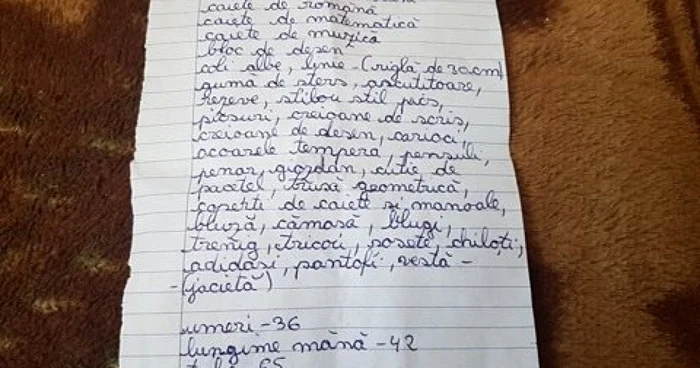 caiete de română
caiete de matematică
caiete de muzică
bloc de desen
coli albe, linie - (riglă de 30 cm)
gumă de sters, ascutitoare,
rezeve, stilou stil pics,
picsuri, creioane de scris,
creioane de desen, carioci,
acoarele tempera, pensuli,
penar, giozdan, cutie de
pacetel, trusă geometrică,
coperti de caiete si manoale,
bluză, cămasă, blugi,
trenig, tricou, sosete, chiloți,
adidași, pantofi, vestă -
- (jacietă)
umeri - 36
lungime mână - 42